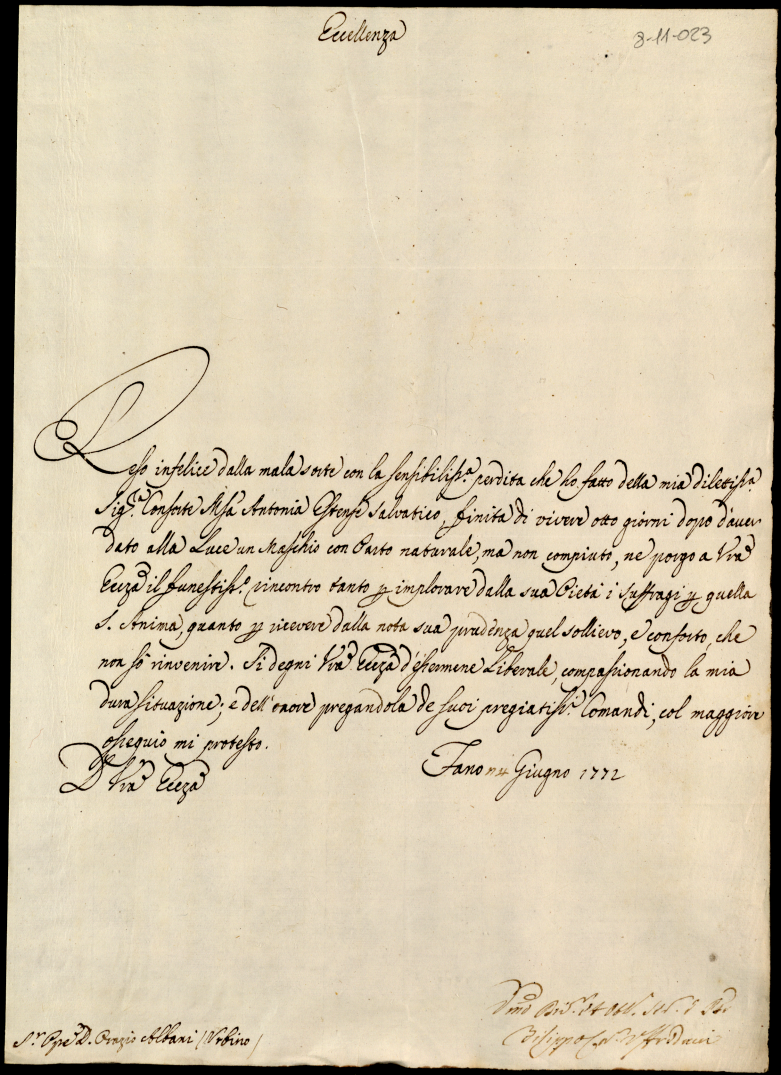 Eccellenza
8-11-023
Reso infelice dalla mala sorte con la sensibilisṡ.ᵃ perdita che ho fatto della mia dilettiss.ᵃ
Sig.ʳᵃ Consorte Msᵃ Antonia Estense Salvatico, finita di vivere otto giorni dopo d'aver
dato alla Luce un Maschio con Parto naturale, ma non compiuto, ne porgo a Vrᵃ
Ecczᵃ il funestiss.º rincontro tanto p implorare dalla sua Pietà i Suffragi p quella
S. Anima, quanto p ricevere dalla nota sua prudenza quel sollievo, e conforto, che
non sò rinvenire. Si degni Vrᵃ Ecczᵃ d'essermene Liberale, compassionando la mia
dura situazione; e dell'onore pregandola de suoi pregiatiss.ⁱ Comandi, col maggiore
ossequio mi protesto.
D Vrᵃ Ecczᵃ
Fano Giugno 1772
S.ʳ Ppe D. Orazio Albani (Urbino)
Filippo